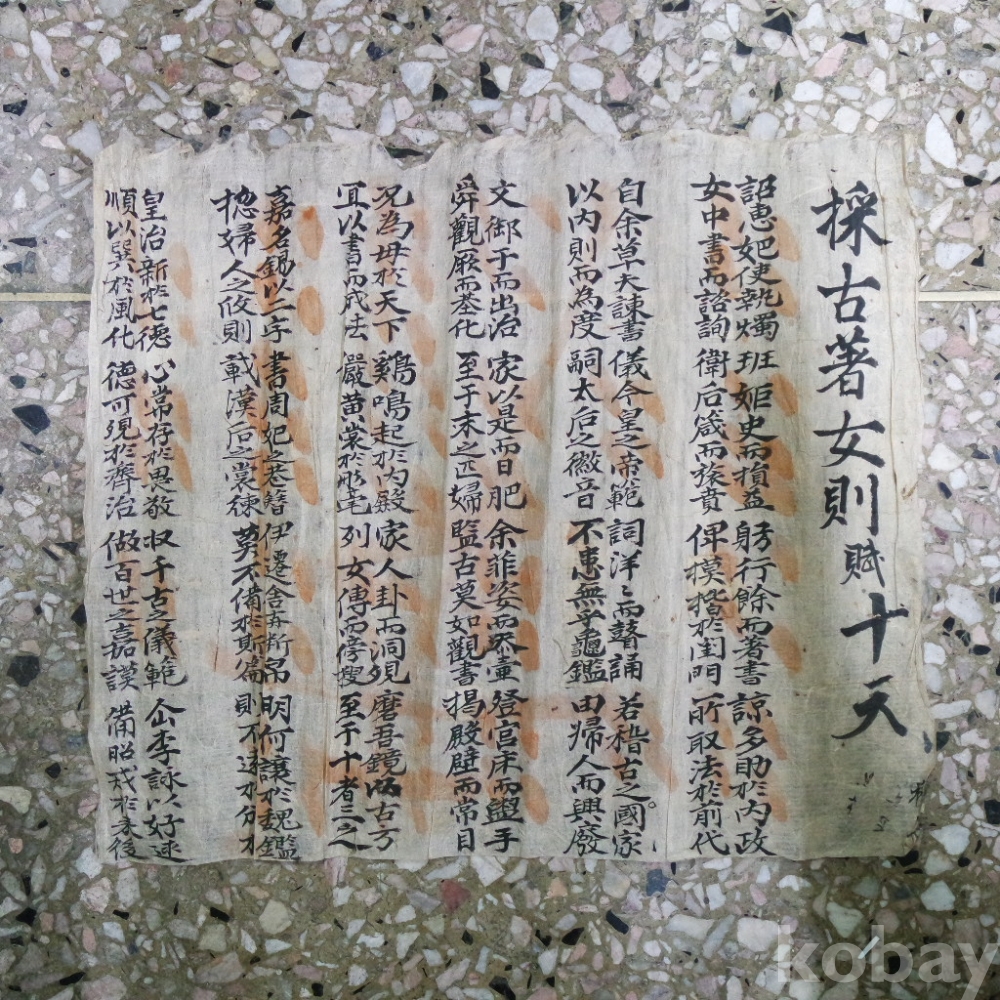 採古著女則賦十天
詔惠妃使執燭 班姬史而損益 躬行餘而著書 諒多助於內政
女中書而諮詢 衛后箴而旅賁 俾模楷於閨門 所取法於前代
自余草大諫書 儀今皇之帝範 詞洋〻而瞽誦 若稽古之國家
以內則而為度 嗣太后之徽音 不患無乎龜鑑 田帰人而興廢
文御于而出治 家以是而日肥 余菲姿而忝壼 登官床而盥手
舜觀厥而基化 至于末之匹婦 監古莫如觀書 揭殿壁而常目
况為母於天下 鷄鳴起於內殿 家人卦而洞覌 磨吾鏡以古方
冝以書而戒去 嚴苗裳於彤毫 列女傳而学 至于十者三之
嘉名錫以二字 書周妃之巻簪 伊遷舍 明何讓於魏鑑
摠婦人之攸則 載漢后之裳練 莫不備於斯篇 則不 於分才
皇治新於七德 心常存於思敬 収千古之儀範 李詠以好逑
順以巽於風化 德可覌於齊治 做百世之嘉謨 備昭戒於来後
kobay